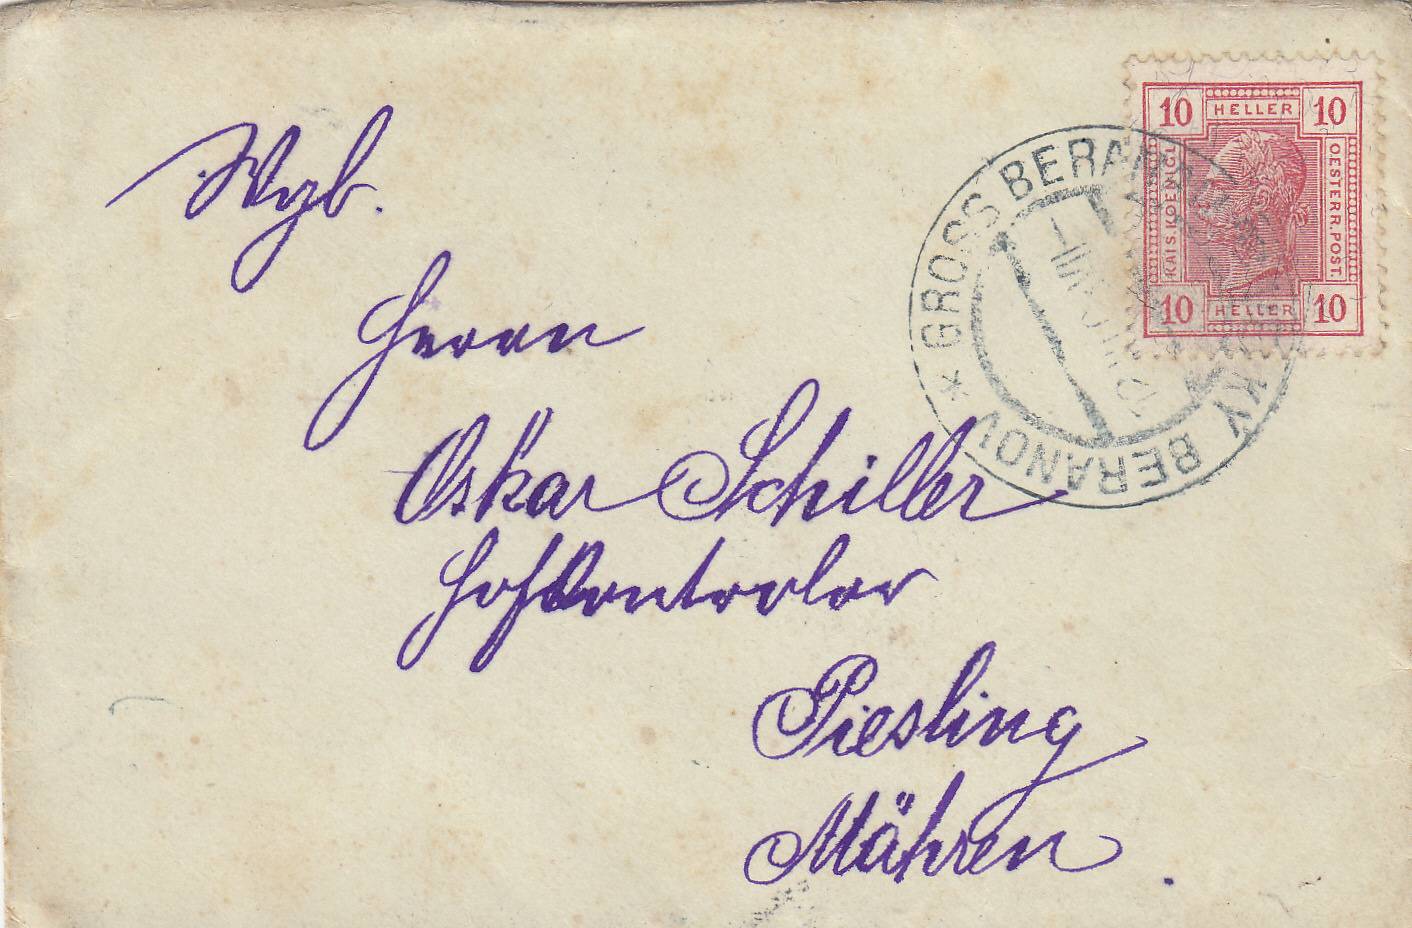 10 HELLER 10
KAIS. KOENIGL.
OESTERR. POST.
10 HELLER 10
* GROSS BERANAU KY BERANOV
Wgb.
Herrn
Oskar Schiller
Hofkontrolor
Piesling
Mähren.